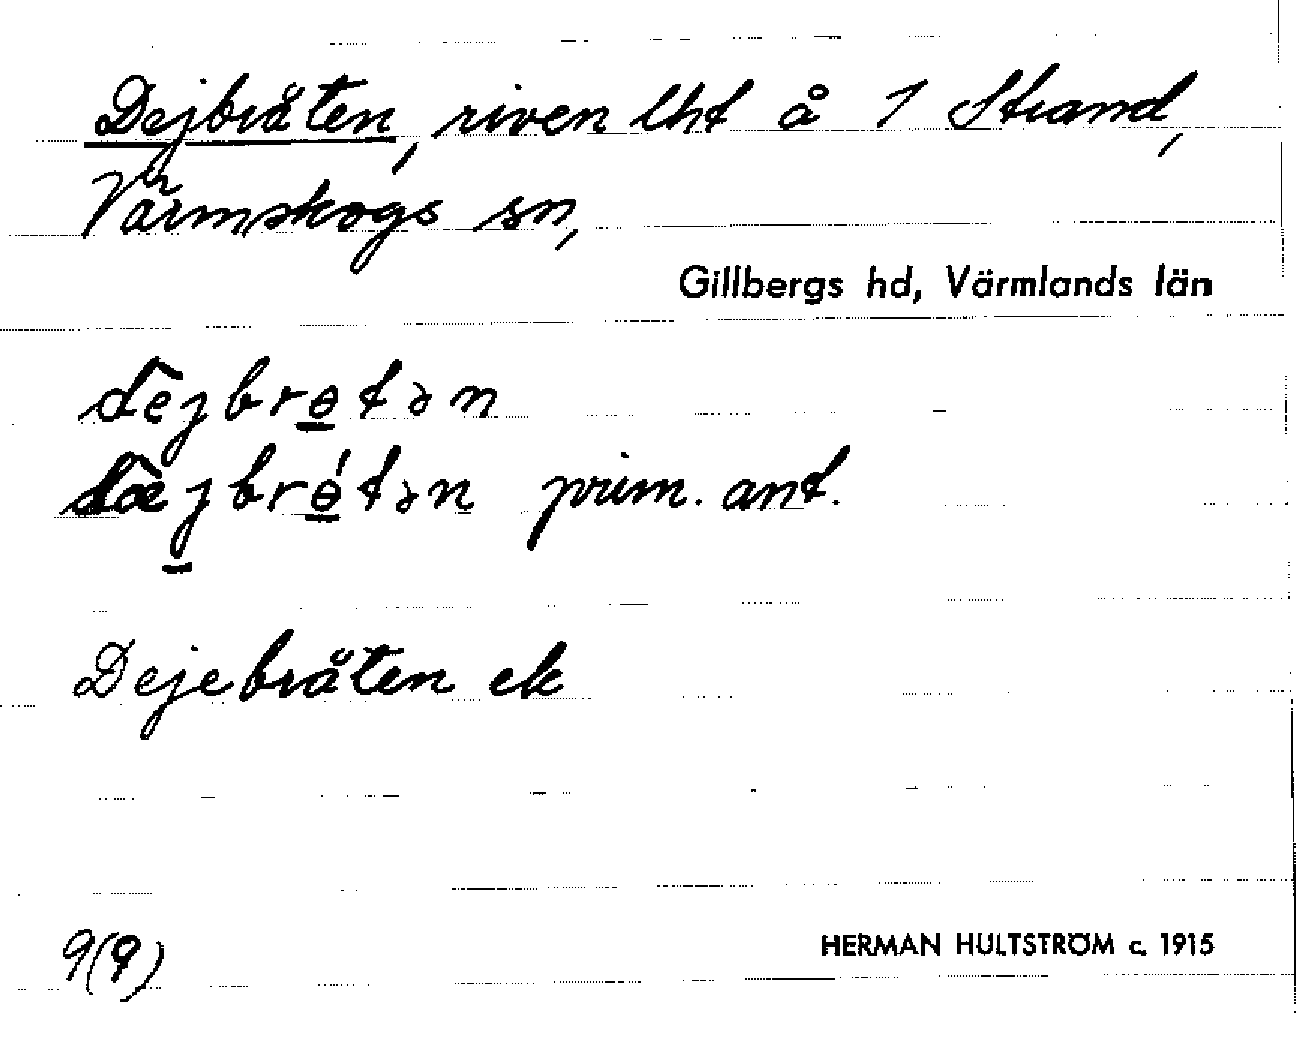 Dejbråten, riven lht å 1 Strand,
Värmskogs sn,
Gillbergs hd, Värmlands län
dejbrɵtən
dæjbrɵ́tən prim. ant.
Dejebråten ek
9(9)
HERMAN HULTSTRÖM c. 1915